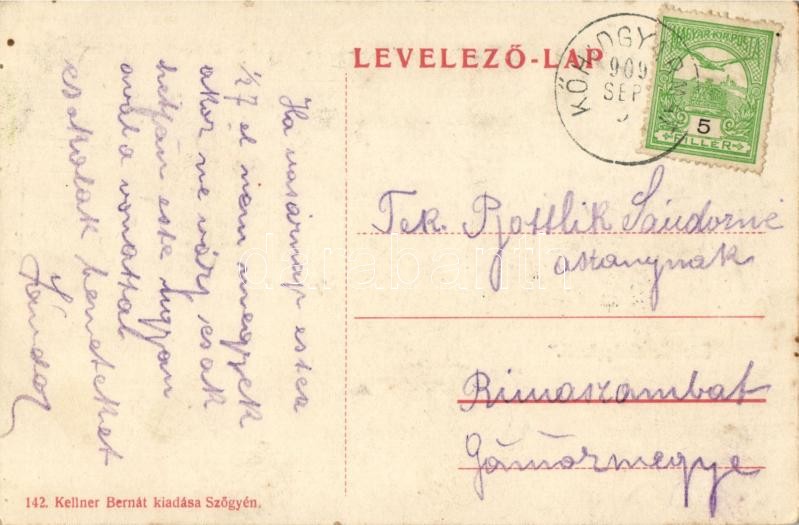 LEVELEZŐ-LAP
KŐHIDGYARMAT
909
SEP
MAGYAR KIR. POSTA
5
FILLÉR
Ha vasárnap estea
1/27 el nem megyek
akor ne várj csak
hétfön este ugyan
avval a vonattal
csokolak benneteket
Sándor
Tek. Rottlik Sándorné
asszonynak
Rimaszombat
Gömörmegye
142. Kellner Bernát kiadása Szőgyén.
darabanth